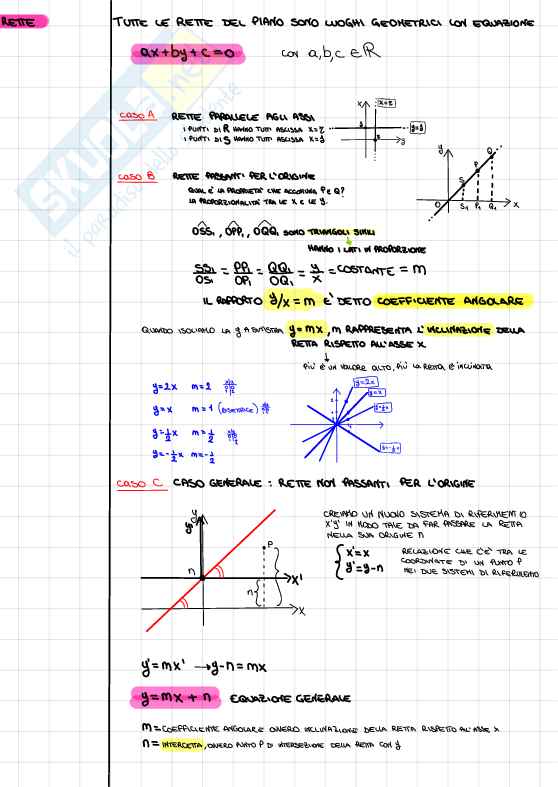 RETTE
TUTTE LE RETTE DEL PIANO SONO LUOGHI GEOMETRICI CON EQUAZIONE
ax+by+c=0 con a,b,c ∈ R
CASO A RETTE PARALLELE AGLI ASSI
I PUNTI DI R HANNO TUTTI ASCISSA X=2
I PUNTI DI S HANNO TUTTI ASCISSA X=3
CASO B RETTE PASSANTI PER L'ORIGINE
QUAL E' LA PROPRIETA' CHE ACCOMUNA P E Q?
LA PROPORZIONALITA' TRA LE X E LE Y.
y
Q
P
S
O S₁ P₁ Q₁ X
OSS₁, OPP₁, OQQ₁ SONO TRIANGOLI SIMILI
HANNO I LATI IN PROPORZIONE
SS₁/OS₁ = PP₁/OP₁ = QQ₁/OQ₁ = y/x = COSTANTE = m
IL RAPPORTO y/x = m E' DETTO COEFFICIENTE ANGOLARE
QUANDO ISOLIAMO LA y A SINISTRA y=mx, m RAPPRESENTA L'INCLINAZIONE DELLA
RETTA RISPETTO ALL'ASSE X
PIU' E' UN VALORE ALTO, PIU' LA RETTA E' INCLINATA
y=2x m=2
y=x m=1 (BISETTRICE)
y=1/2x m=1/2
y=-1/2x m=-1/2
y=2x
y=x
CASO C CASO GENERALE: RETTE NON PASSANTI PER L'ORIGINE
CREIAMO UN NUOVO SISTEMA DI RIFERIMENTO
X'Y' IN MODO TALE DA FAR PASSARE LA RETTA
NELLA SUA ORIGINE n
{ x'=x
y'=y-n
RELAZIONE CHE C'E' TRA LE
COORDINATE DI UN PUNTO P
NEI DUE SISTEMI DI RIFERIMENTO
y
P
n
X'
n
X
y'=mx' → y-n=mx
y=mx+n EQUAZIONE GENERALE
m=COEFFICIENTE ANGOLARE OVVERO INCLINAZIONE DELLA RETTA RISPETTO ALL'ASSE X
n=INTERCETTA, OVVERO PUNTO P DI INTERSEZIONE DELLA RETTA CON y